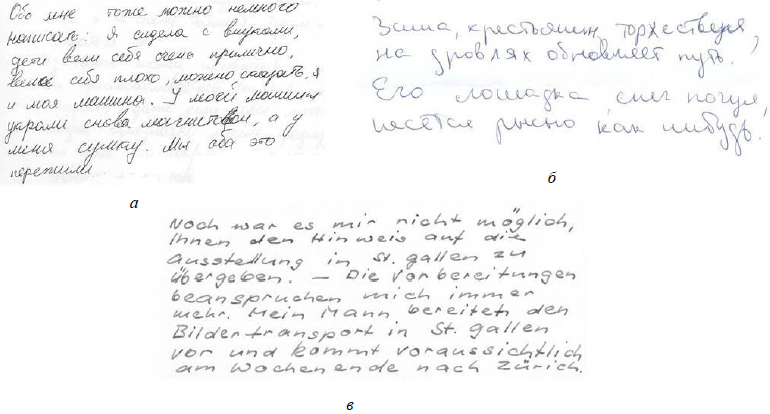 Обо мне тоже можно немного
написать: я сидела с внуками,
дети вели себя очень прилично,
вела себя плохо, можно сказать, я
и моя машина. У моей машины
украли снова магнитофон, а у
меня сумку. Мы оба это
пережили.
а
Зима, крестьянин, торжествуя,
на дровлях обновляет путь.
Его лошадка, снег почуя,
несётся рысью как нибудь.
б
Noch war es mir nicht möglich,
Ihnen den Hinweis auf die
Ausstellung in St. gallen zu
übergeben. – Die Vorbereitungen
beanspruchen mich immer
mehr. Mein Mann bereitet den
Bildertransport in St. gallen
vor und kommt voraussichtlich
am Wochenende nach Zürich.
в